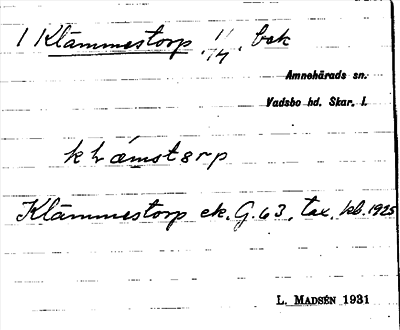 1 Klämmestorp 11/74. bek
Amnehärads sn.
Vadsbo hd. Skar. l.
klämstərp
Klämmestorp ek. G. 63, tax. kb. 1925
L. MADSÉN 1931